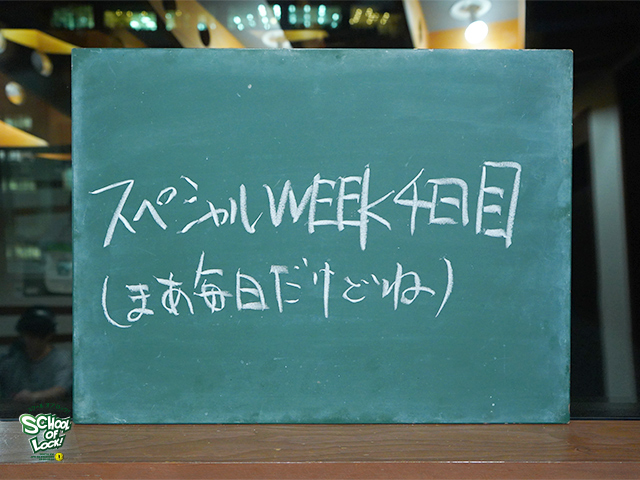 スペシャルWEEK4日目
(まあ毎日だけどね)
SCHOOL
OF
LOCK!